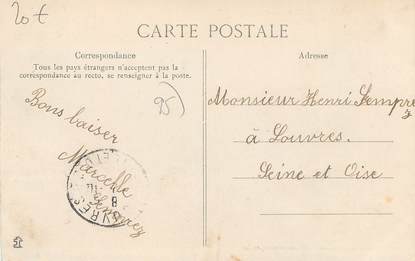 20 €
CARTE POSTALE
Correspondance
Tous les pays étrangers n'acceptent pas la
correspondance au recto, se renseigner à la poste.
Adresse
95)
Bons baiser
Marcelle
Semprez
Monsieur Henri Semprez
à Louvres.
Seine et Oise